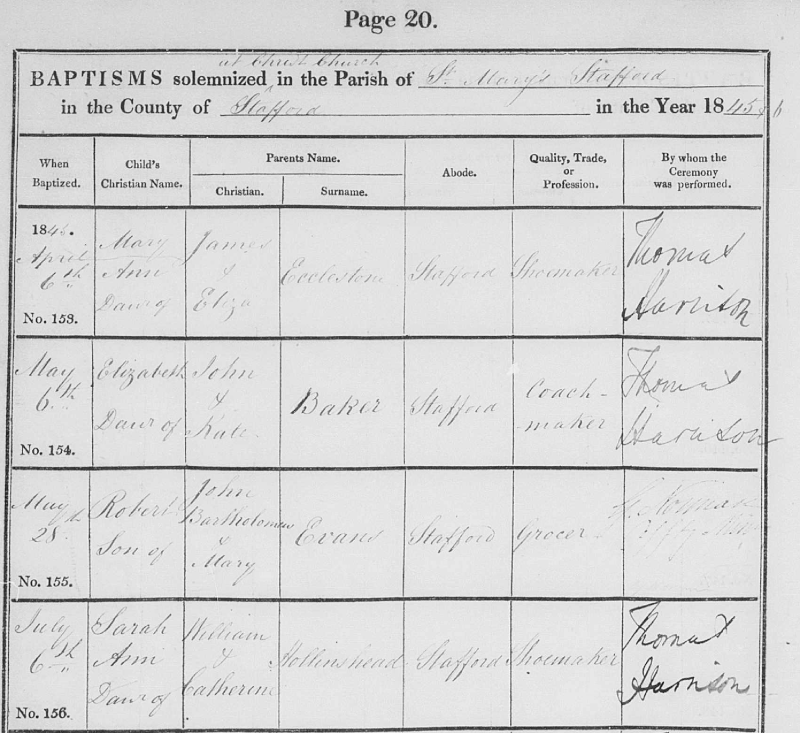 Page 20.
at Christ Church
BAPTISMS solemnized in the Parish of St. Mary's Stafford
in the County of Stafford in the Year 1845 & 6
When Baptized.
Child's Christian Name.
Parents Name.
Christian.
Surname.
Abode.
Quality, Trade, or Profession.
By whom the Ceremony was performed.
1846.
April
6th
No. 153.
Mary
Ann
Daur of
James
&
Eliza
Eccleston
Stafford
Shoemaker
Thomas
Harrison
May
6th
No. 154.
Elizabeth
Daur of
John
&
Kate
Baker
Stafford
Coach-
-maker
Thomas
Harrison
May
28th
No. 155.
Robert
Son of
John
Bartholomew
&
Mary
Evans
Stafford
Grocer
July
6th
No. 156.
Sarah
Ann
Daur of
William
&
Catherine
Hollinshead
Stafford
Shoemaker
Thomas
Harrison